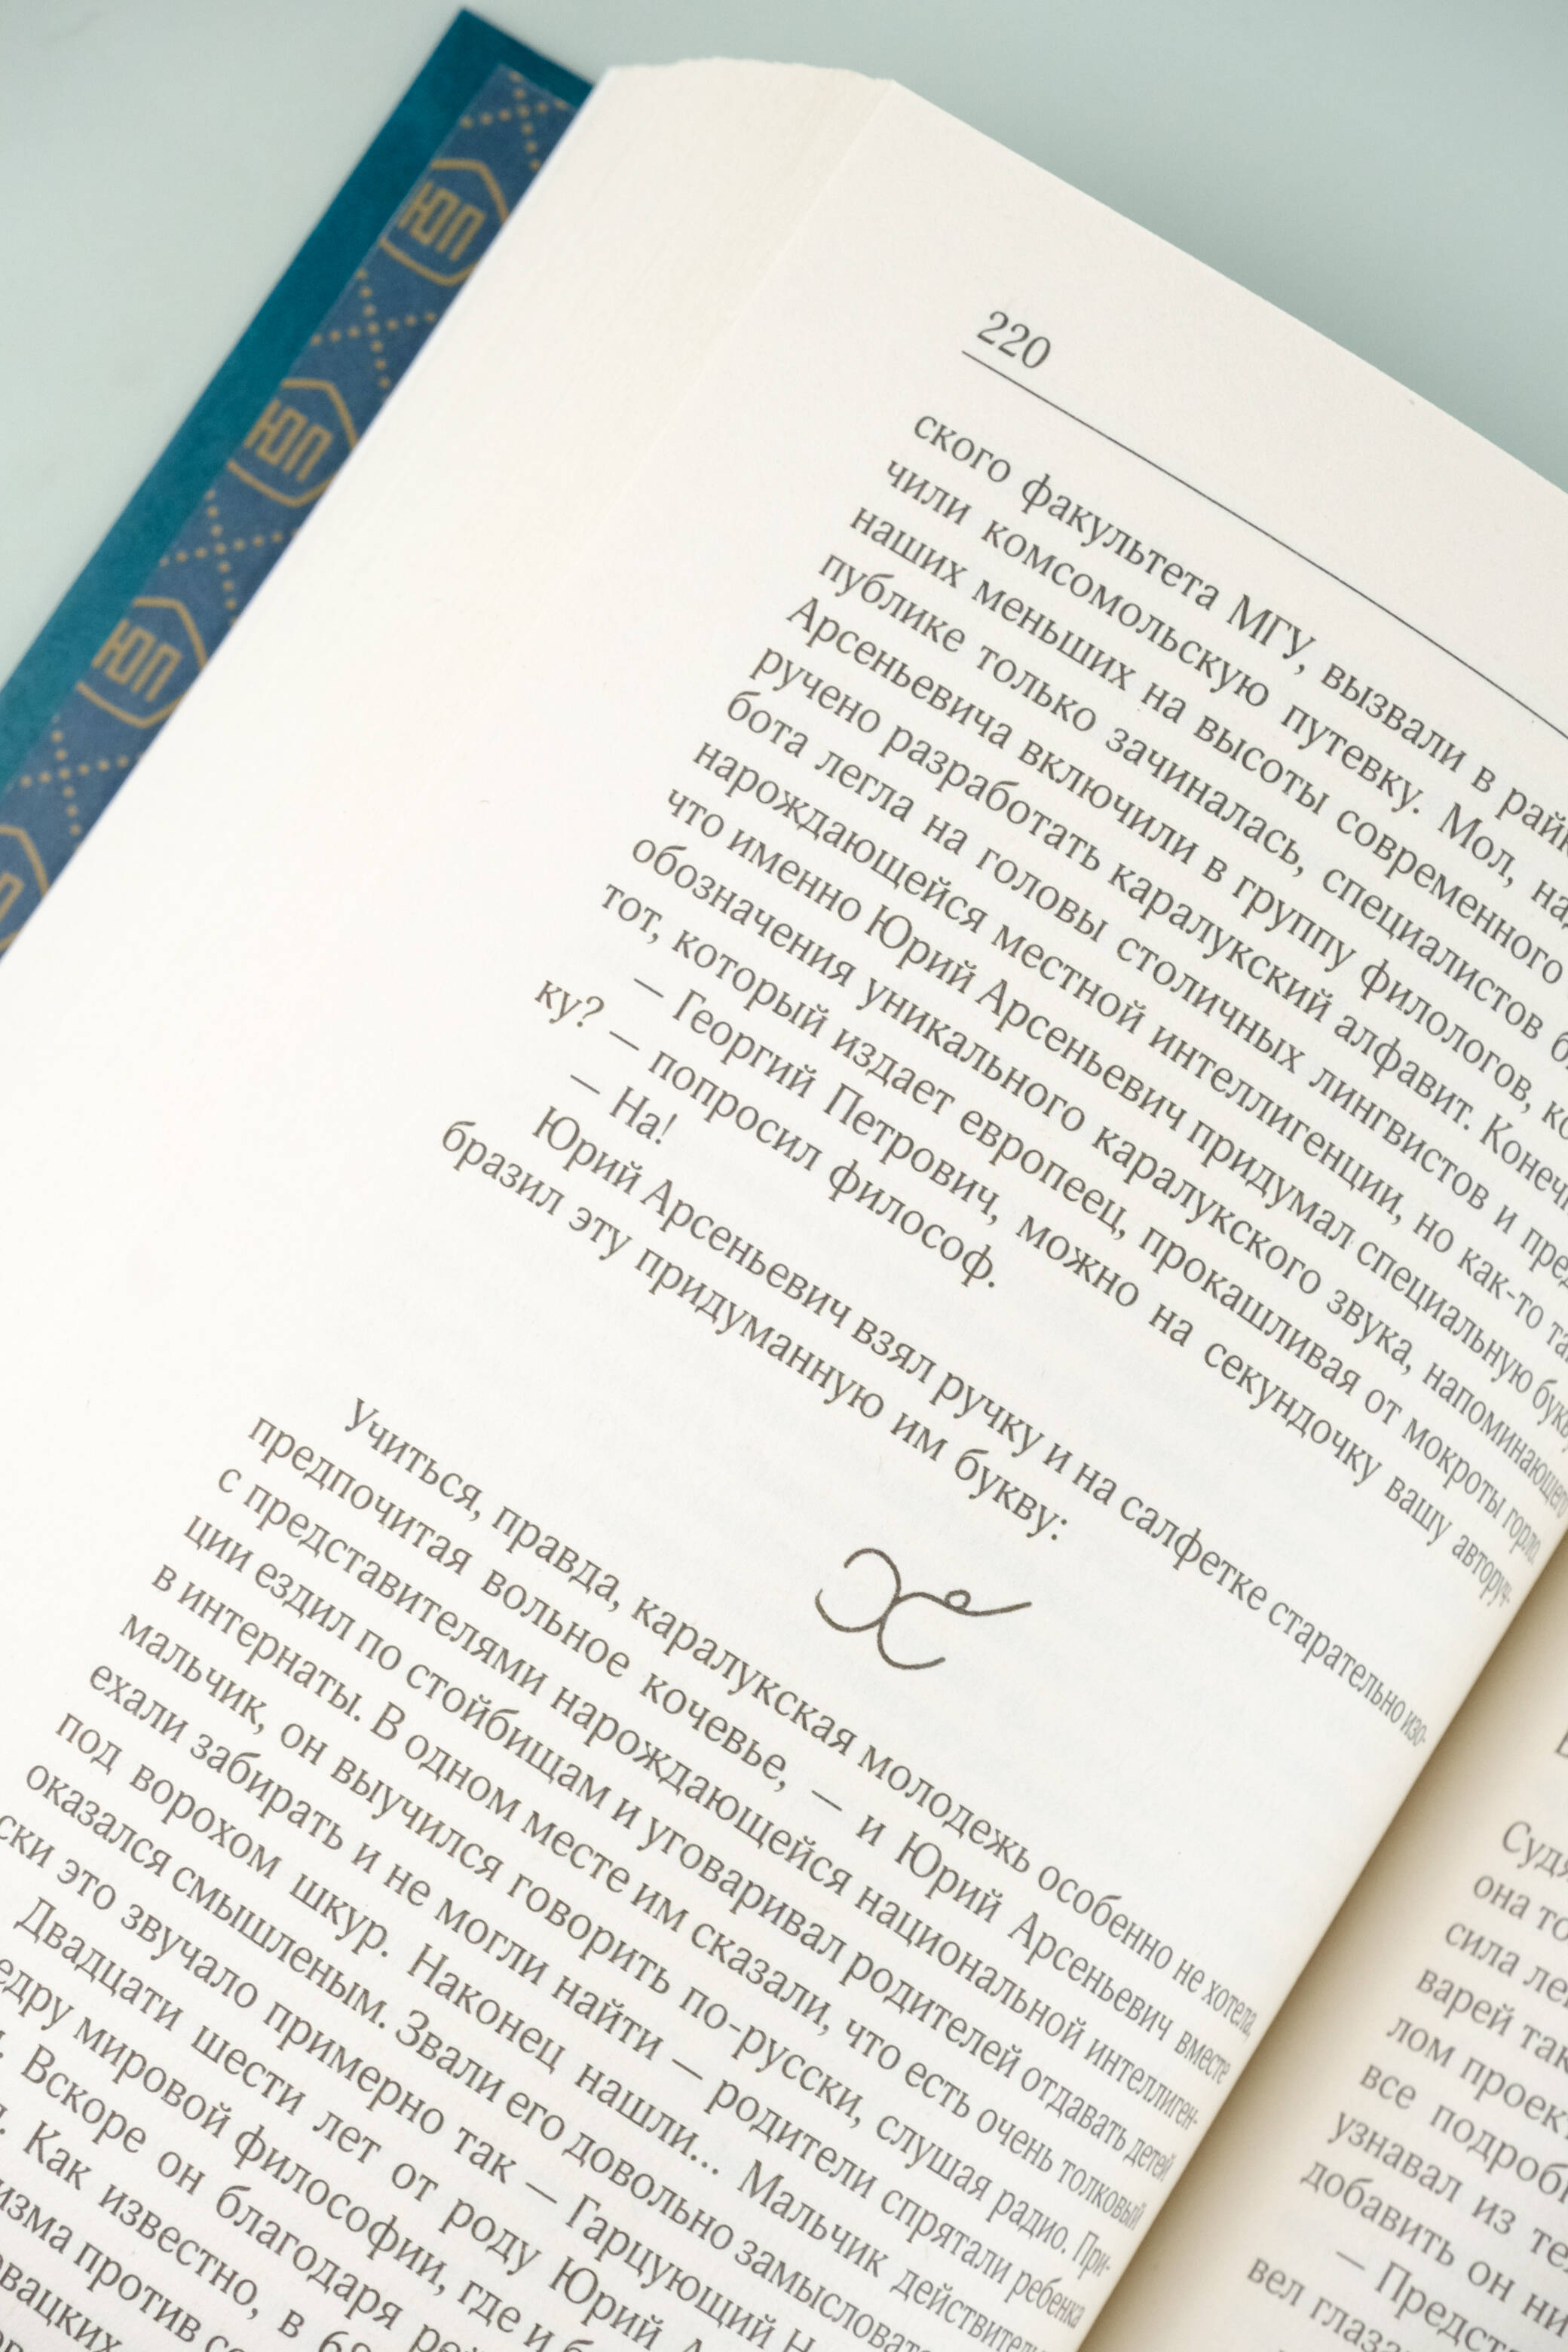 ЮП
ЮП
ЮП
220
ского факультета МГУ, вызвали в
чили комсомольскую путевку. Мол,
наших меньших на высоты современного
публике только зачиналась, специалистов
Арсеньевича включили в группу филологов,
ручено разработать каралукский алфавит.
бота легла на головы столичных лингвистов и
нарождающейся местной интеллигенции, но как-то
что именно Юрий Арсеньевич придумал специальную
обозначения уникального каралукского звука, напоминающего
тот, который издает европеец, прокашливая от мокроты горло.
— Георгий Петрович, можно на секундочку вашу авторуч-
ку? — попросил философ.
— На!
Юрий Арсеньевич взял ручку и на салфетке старательно изо-
бразил эту придуманную им букву:
Учиться, правда, каралукская молодежь особенно не хотела,
предпочитая вольное кочевье, — и Юрий Арсеньевич вместе
с представителями нарождающейся национальной интеллиген-
ции ездил по стойбищам и уговаривал родителей отдавать детей
в интернаты. В одном месте им сказали, что есть очень толковый
мальчик, он выучился говорить по-русски, слушая радио. При-
ехали забирать и не могли найти — родители спрятали ребенка
под ворохом шкур. Наконец нашли... Мальчик
оказался смышленым. Звали его довольно
ски это звучало примерно так — Гарцующий
Двадцати шести лет от роду Юрий
мировой философии, где и
Вскоре он благодаря
Как известно, в
против
Судя
она
сила
варей
лом
все
узнавал из
добавить он
—
вел глаза